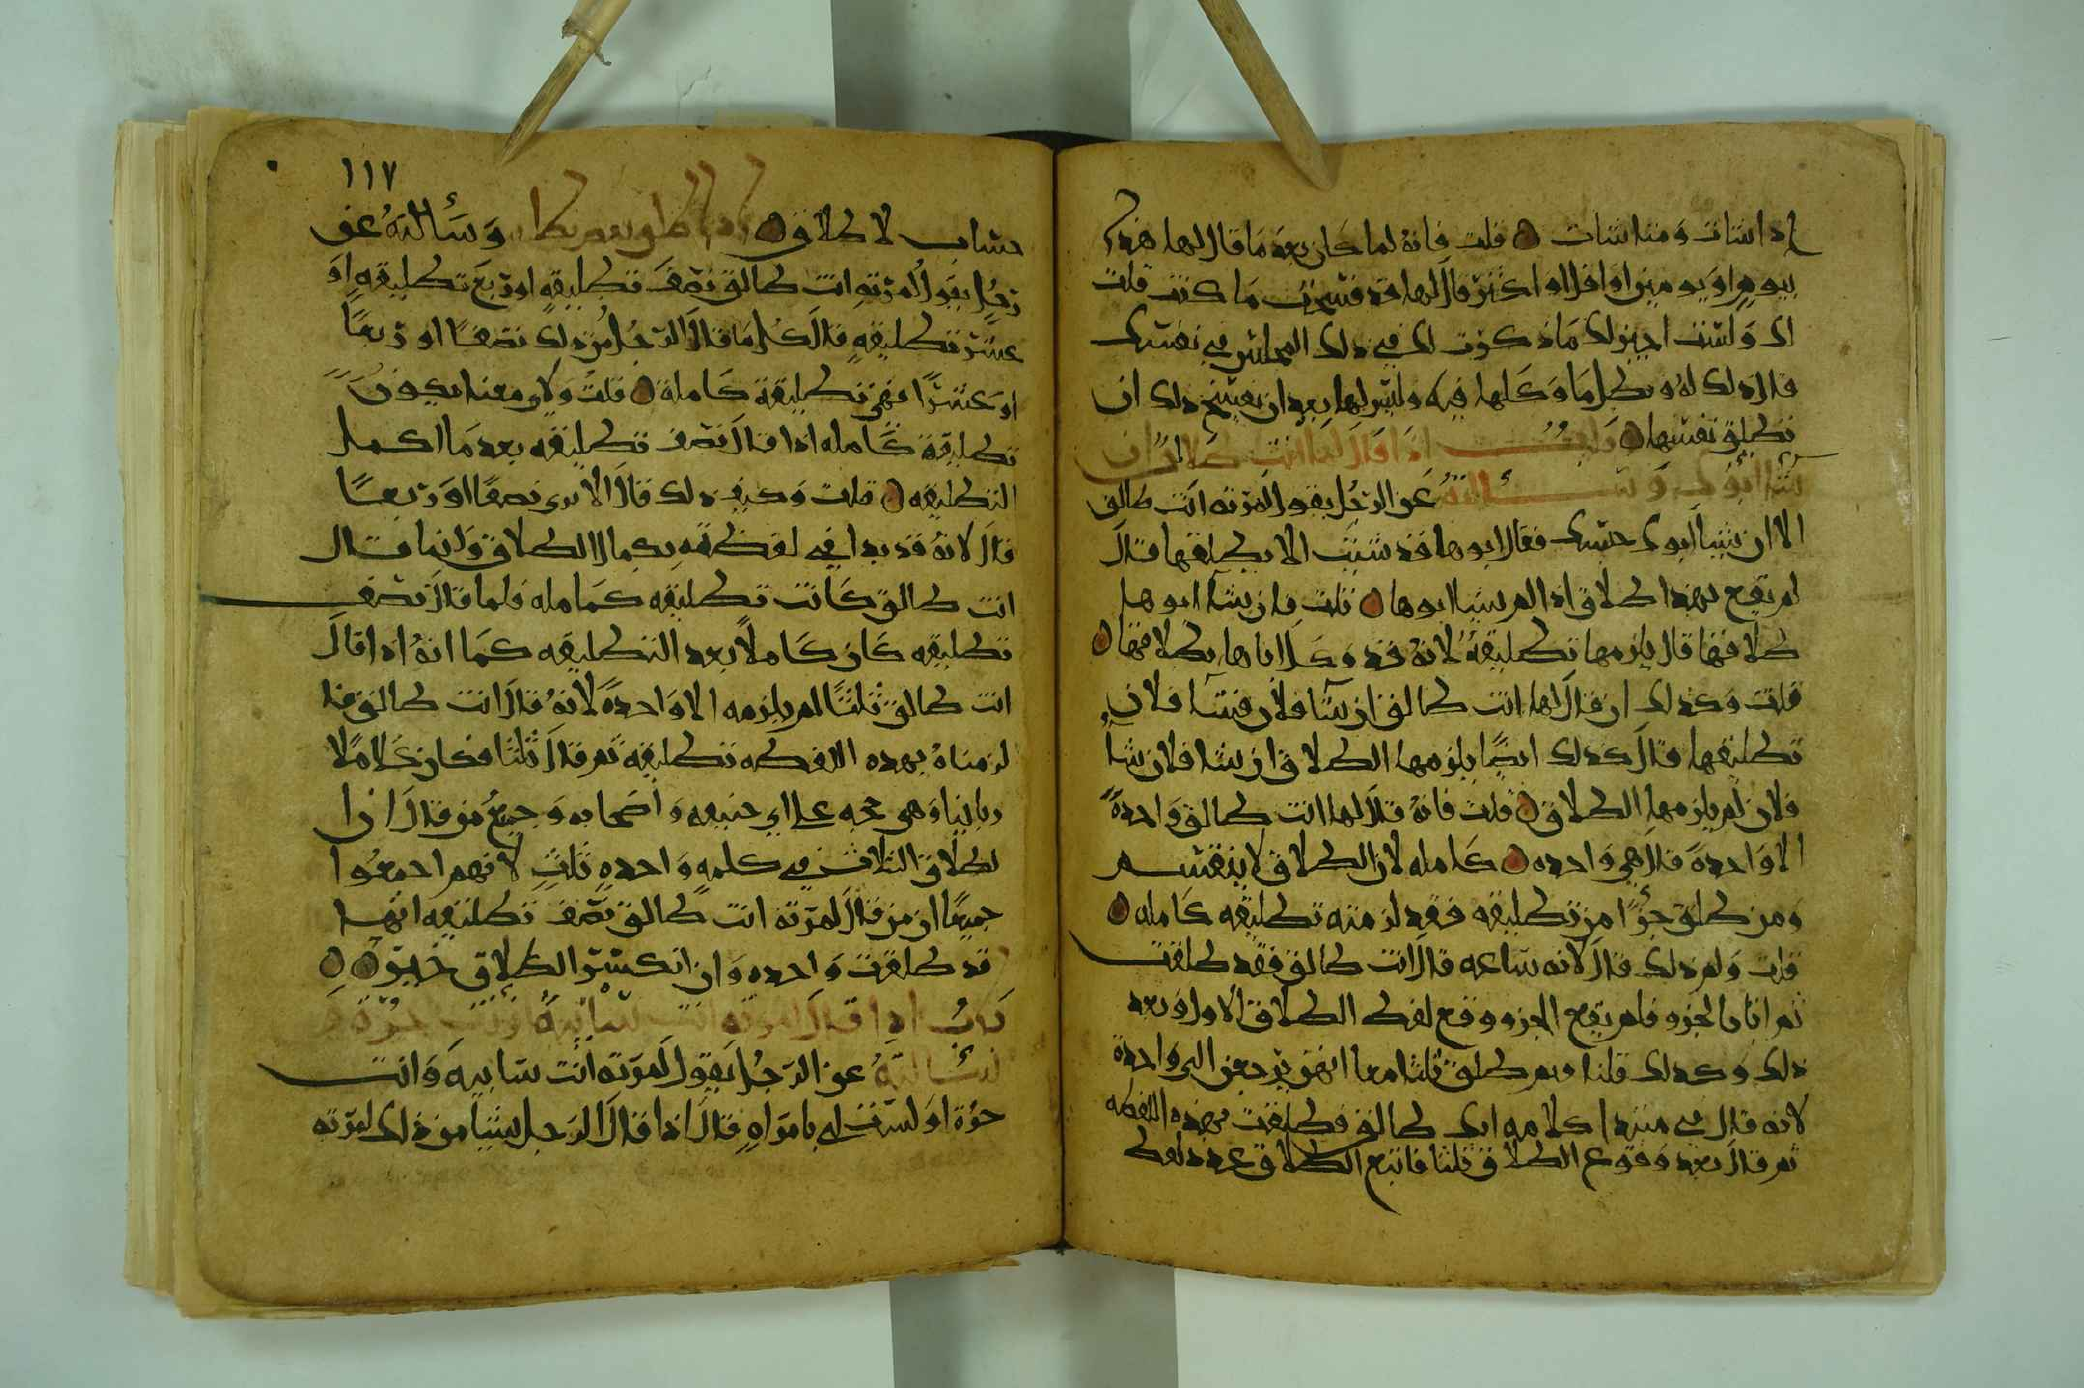 اذا شات ومتا شات قلت فانه لما كان بعد ما قال لها هذا
بيوم او يومين او اقل او اكثر قال لها قد فسخت ما كنت قلت
لك ولست اجيز لك ما ذكرت لك في ذلك المجلس في نفسك
قال ذلك له ويبطل ما وكلها فيه وليس لها بعد ان يفسخ ذلك ان
تطلق نفسها اذا قال لها انت طلاق ان
شا ابوك وسألته عن الرجل يقول لمرته انت طالق
الا ان يشا ابوك حبسك فقال ابوها قد شيت الا يطلقها قال
لم يقع بهذا طلاق اذا لم يشا ابوها قلت فان شا ابوها
طلاقها قال يلزمها تطليقة لانه قد وكل اباها بطلاقها
قلت وكذلك ان قال لها انت طالق ان شا فلان فشا فلان
تطليقها قال كذلك ايضا يلزمها الطلاق ان شا فلان شا
فلان لم يلزمها الطلاق قلت فانه قال لها انت طالق واحدة
الا واحدة قال هي واحده كامله لان الطلاق لا ينقسم
ومن طلق جزءا من تطليقه فقد لزمته تطليقه كامله
قلت ولم ذلك قال لانه ساعه قال انت طالق فقد طلقت
ثم اتا بالجزو فلم يقع الجزو وقع لفظ الطلاق الاول وبعد
ذلك وكذلك قلنا فيمن طلق ثلثا معا انهن يرجعن الى واحدة
لانه قال في مبتدا كلامه انت طالق فطلقت بهذه اللفظه
ثم قال بعد وقوع الطلاق ثلثا فاتبع الطلاق عدد لفظ
١١٧
حساب لا طلاق وسألته عن
رجل يقول لمرته انت طالق نصف تطليقه او ربع تطليقه او
عشر تطليقه قال كل ما قال الرجل من ذلك نصفا او ربعا
او عشرا فهي تطليقة كاملة قلت ولاي معنا يكون
تطليقة كامله اذا قال نصف تطليقه بعد ما اكمل
التطليقه قلت وكيف ذلك قال الا ترى نصفا او ربعا
قال لانه قد بدا في لفظه بكمال الطلاق وانما قال
انت طالق كانت تطليقه كامله فلما قال نصف
تطليقه كان كاملا بعد التطليقه كما انه اذا قال
انت طالق ثلثا لم يلزمه الا واحدة لانه قال انت طالق
لزمناه بهذه اللفظه تطليقة ثم قال ثلثا فكان كلاما
وهي حجه على ابي حنيفه واصحابه وجميع من قال
لطلاق الثلاث في كلمه واحده ثلث لانهم اجمعوا
جميعا ان من قال لمرته انت طالق نصف تطليقه انها
قد طلقت واحده وان
باب اذا قال لمرته انت سايبة او انت حرة
سألته عن الرجل يقول لمرته انت سايبة وانت
حرة او لست لي بامراه قال اذا قال الرجل شيا من ذلك لمرته